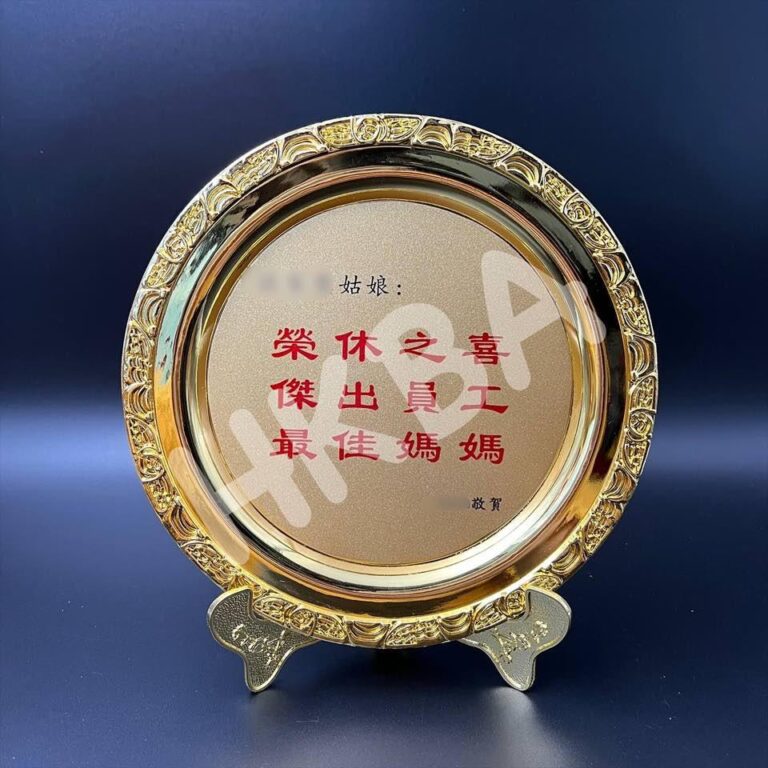 姑娘：
榮休之喜
傑出員工
最佳媽媽
敬賀
HKBA